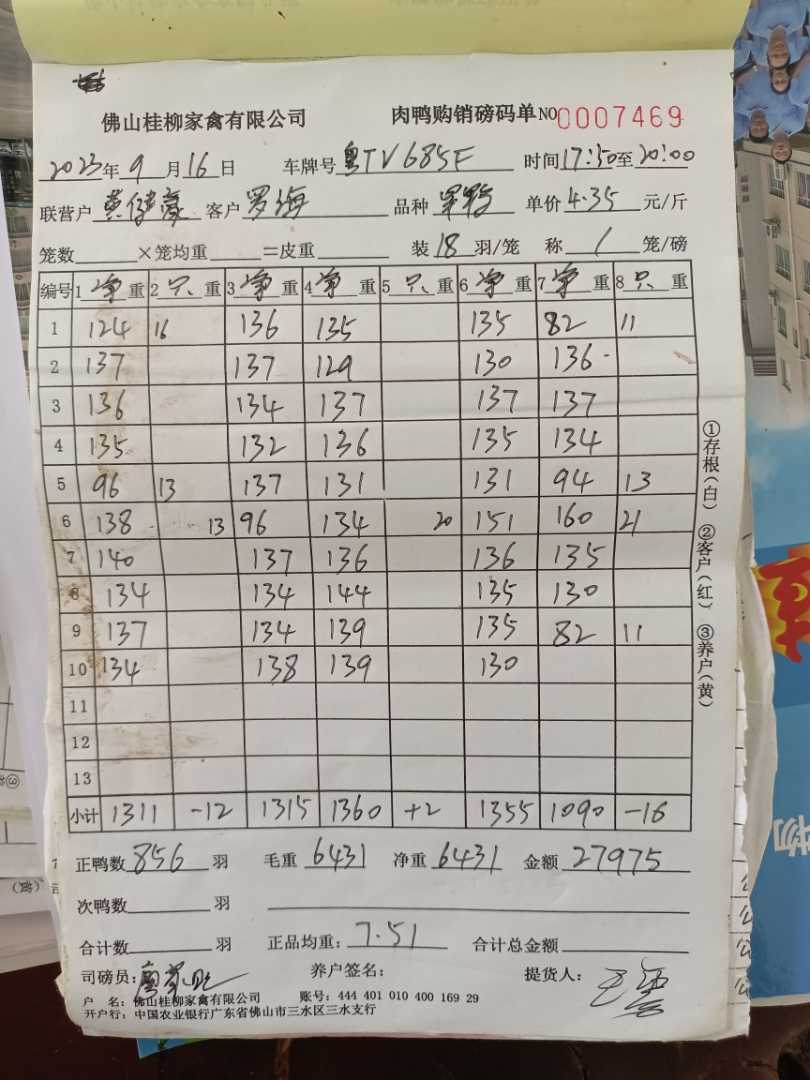 佛山桂柳家禽有限公司 肉鸭购销磅码单 NO 0007469
2023年9月16日 车牌号 粤TV685F 时间17:50至20:00
联营户 黄健豪 客户 罗海 品种 单价4.35元/斤
笼数 ×笼均重 =皮重 装18羽/笼 称1笼/磅
编号 1净重 2只重 3净重 4净重 5只重 6净重 7净重 8只重
1 124 16 136 135 135 82 11
2 137 137 129 130 136
3 136 134 137 137 137
4 135 132 136 135 134
5 96 13 137 131 131 94 13
6 138 13 96 134 20 151 160 21
7 140 137 136 136 135
8 134 134 144 135 130
9 137 134 139 135 82 11
10 134 138 139 130
11
12
13
小计 1311 -12 1315 1360 +2 1355 1090 -16
正鸭数856羽 毛重6431 净重6431 金额27975
次鸭数 羽
合计数 羽 正品均重:7.51 合计总金额
司磅员: 养户签名: 提货人:
户 名:佛山桂柳家禽有限公司 账号:444 401 010 400 169 29
开户行:中国农业银行广东省佛山市三水区三水支行
①存根(白) ②客户(红) ③养户(黄)